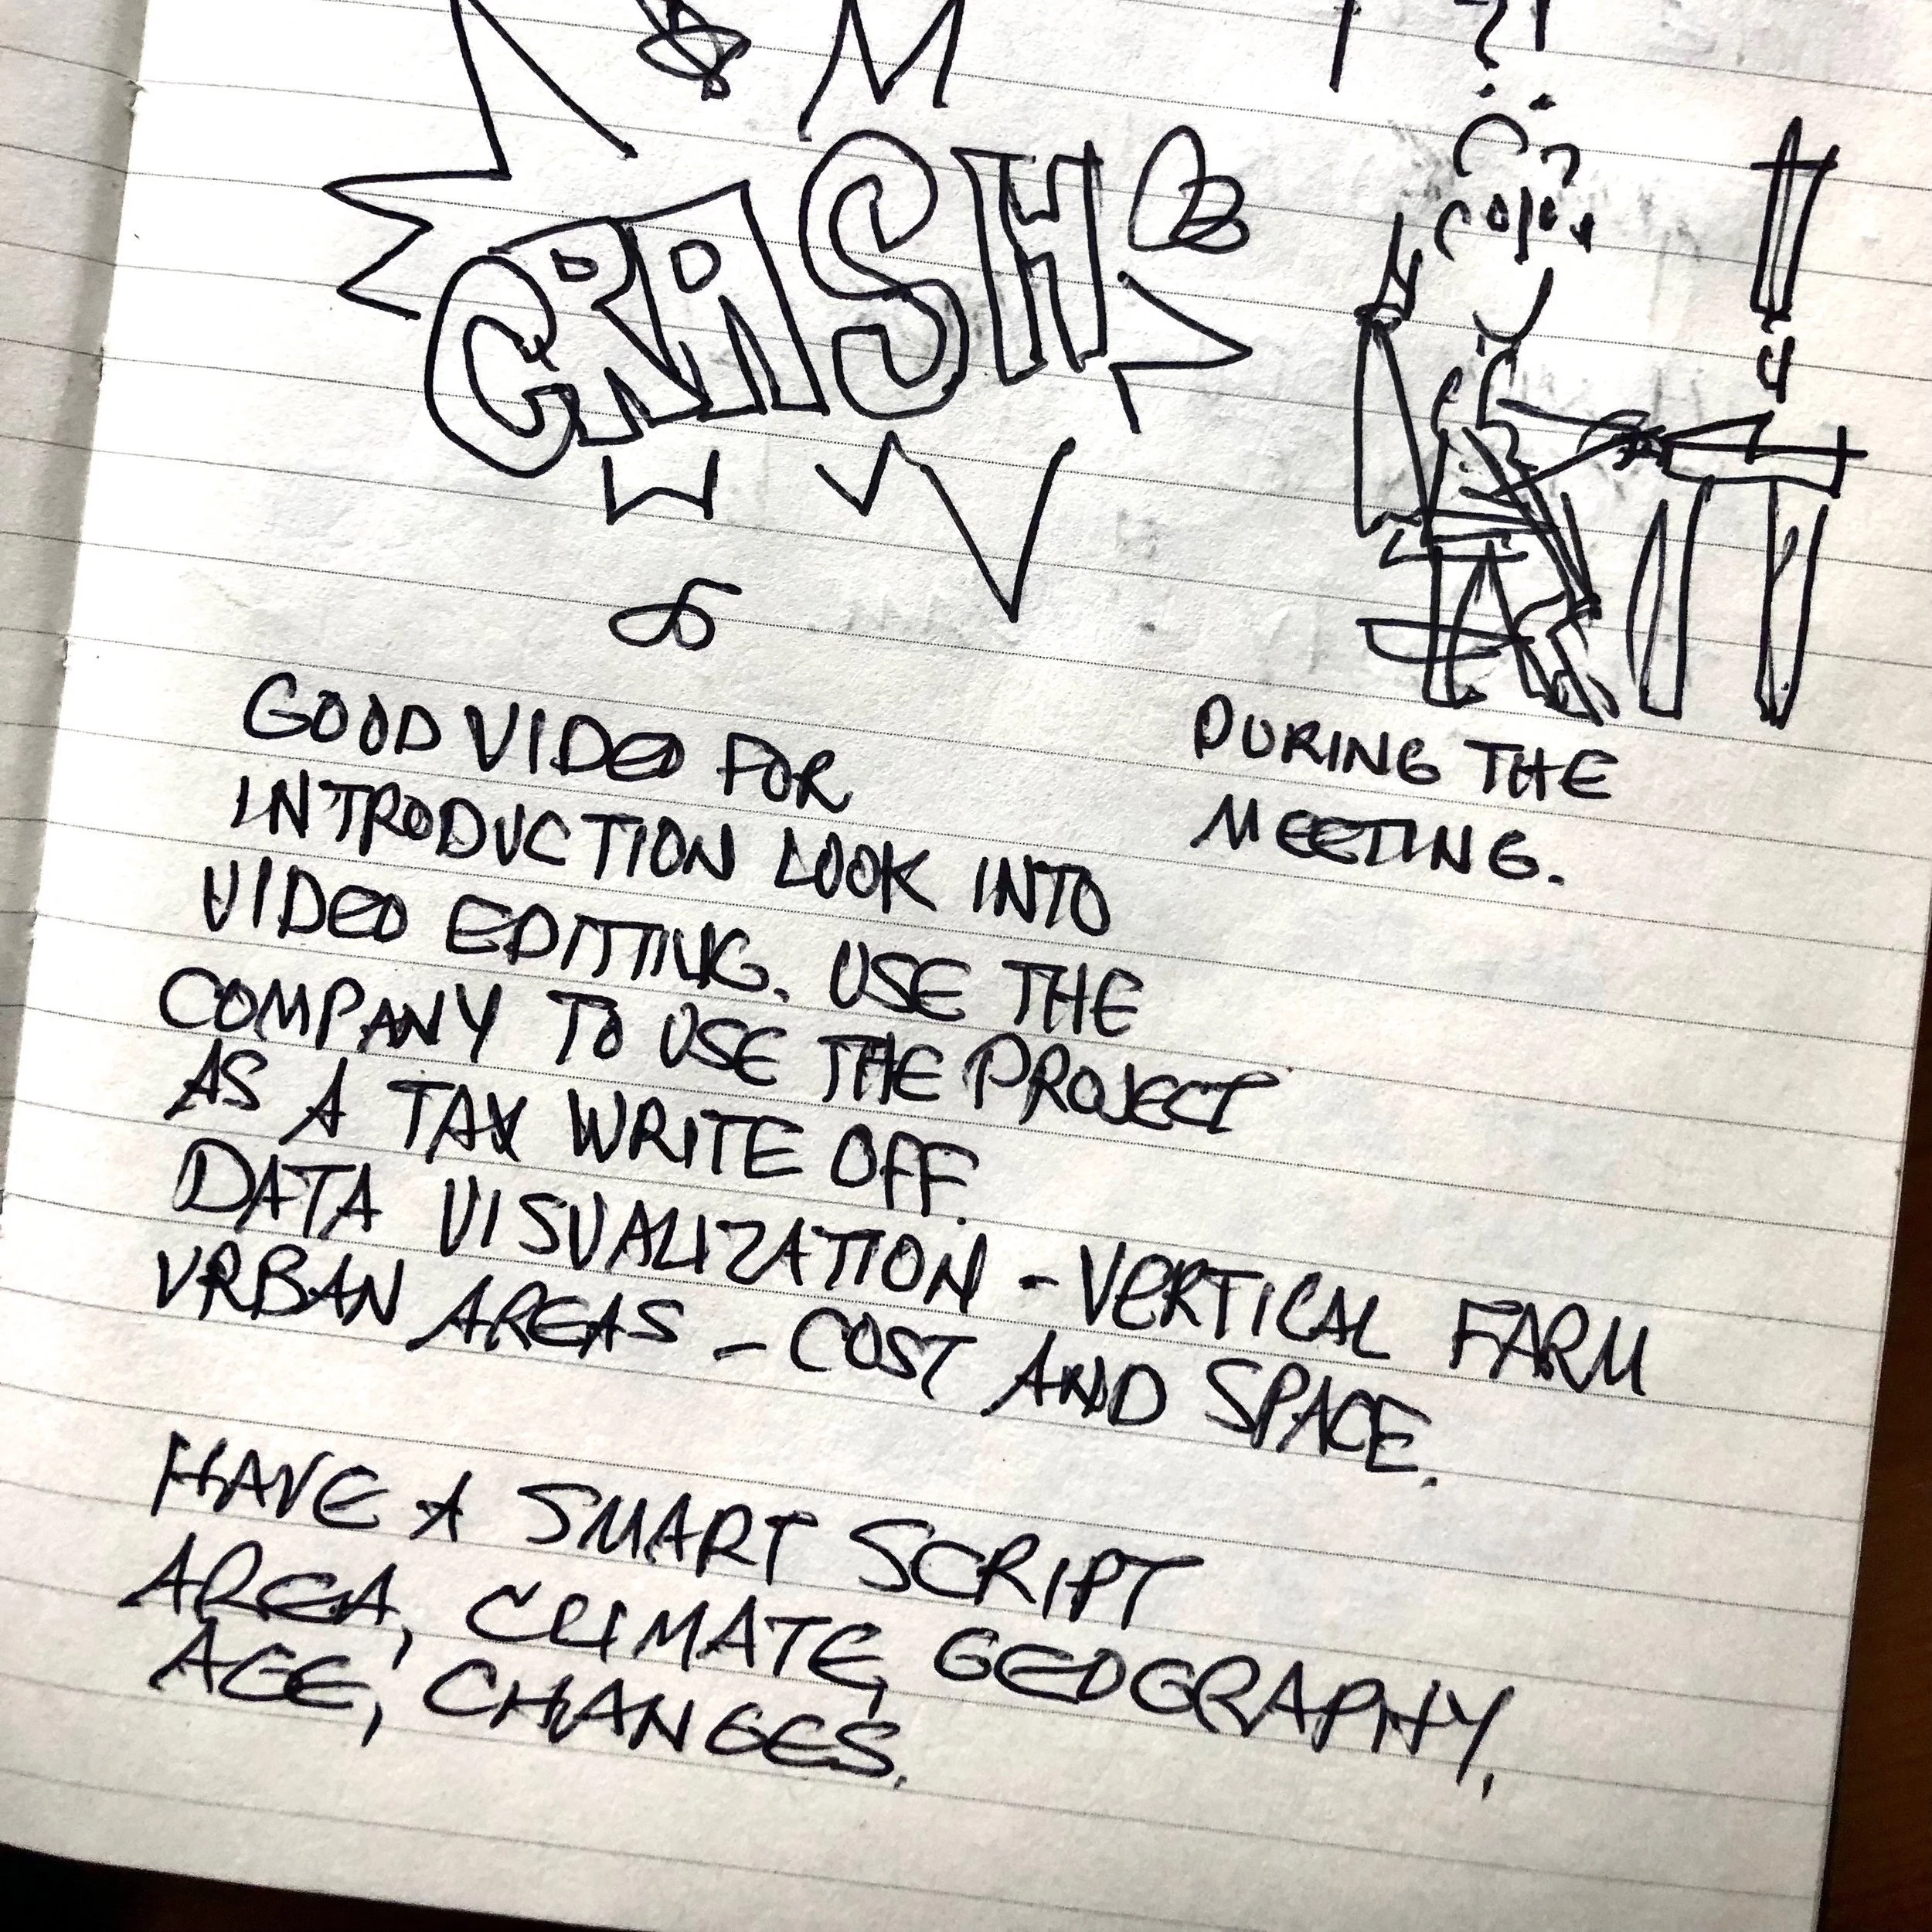 ?!
CRASH
GOOD VIDEO FOR
INTRODUCTION LOOK INTO
VIDEO EDITING. USE THE
COMPANY TO USE THE PROJECT
AS A TAX WRITE OFF.
DATA VISUALIZATION - VERTICAL FARM
URBAN AREAS - COST AND SPACE.
HAVE A SMART SCRIPT
AREA, CLIMATE, GEOGRAPHY,
AGE, CHANGES.
DURING THE
MEETING.